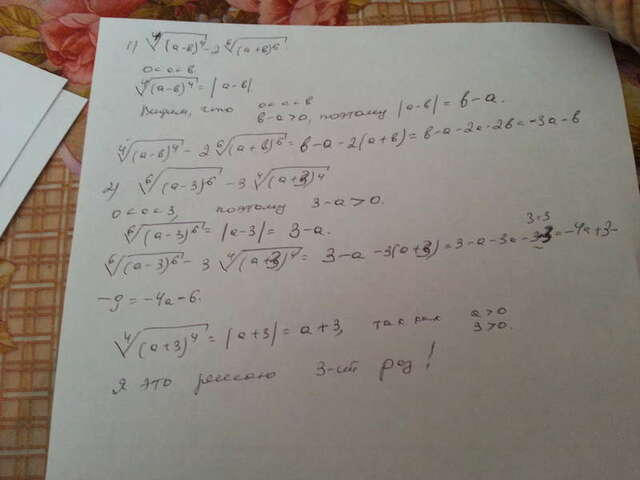 1) ⁴√(a-b)⁴ - 2 ⁶√(a+b)⁶
0<a<b
⁴√(a-b)⁴ = |a-b|
Видим, что 0<a<b
b-a>0, поэтому |a-b| = b-a.
⁴√(a-b)⁴ - 2 ⁶√(a+b)⁶ = b-a-2(a+b) = b-a-2a-2b = -3a-b
2) ⁶√(a-3)⁶ - 3 ⁴√(a+3)⁴
0<a<3, поэтому 3-a>0.
⁶√(a-3)⁶ = |a-3| = 3-a.
3·3
⁶√(a-3)⁶ - 3 ⁴√(a+3)⁴ = 3-a-3(a+3) = 3-a-3a-33 = -4a+3-
-9 = -4a-6.
⁴√(a+3)⁴ = |a+3| = a+3, так как a>0
3>0.
Я это решаю 3-ий раз!